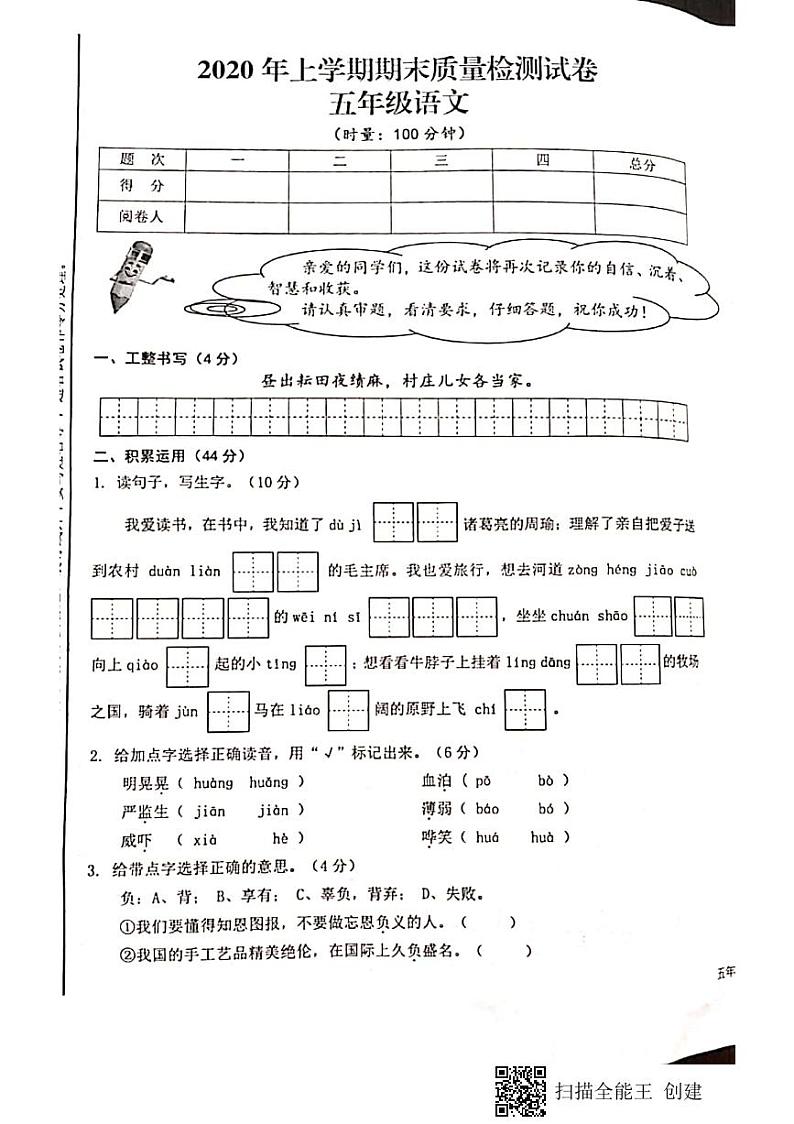 2020 年上学期期末质量检测试卷
五年级语文
（时量：100 分钟）
题 次 一 二 三 四 总分
得 分
阅卷人
亲爱的同学们，这份试卷将再次记录你的自信、沉着、
智慧和收获。
请认真审题，看清要求，仔细答题，祝你成功！
一、工整书写（4 分）
昼出耘田夜绩麻，村庄儿女各当家。
二、积累运用（44 分）
1. 读句子，写生字。（10 分）
我爱读书，在书中，我知道了 dù jì 诸葛亮的周瑜；理解了亲自把爱子送
到农村 duàn liàn 的毛主席。我也爱旅行，想去河道 zòng héng jiāo cuò
的 wēi ní sī ，坐坐 chuán shāo
向上 qiào 起的小 tǐng ；想看看牛脖子上挂着 líng dāng 的牧场
之国，骑着 jùn 马在 liáo 阔的原野上飞 chí 。
2. 给加点字选择正确读音，用“√”标记出来。（6 分）
明晃晃（ huàng huǎng ） 血泊（ pō bò ）
严监生（ jiān jiàn ） 薄弱（ báo bó ）
威吓 （ xià hè ） 哗笑（ huá huà ）
3. 给带点字选择正确的意思。（4 分）
负：A、背； B、享有； C、辜负，背弃； D、失败。
①我们要懂得知恩图报，不要做忘恩负义的人。（ ）
②我国的手工艺品精美绝伦，在国际上久负盛名。（ ）
五年
扫描全能王 创建